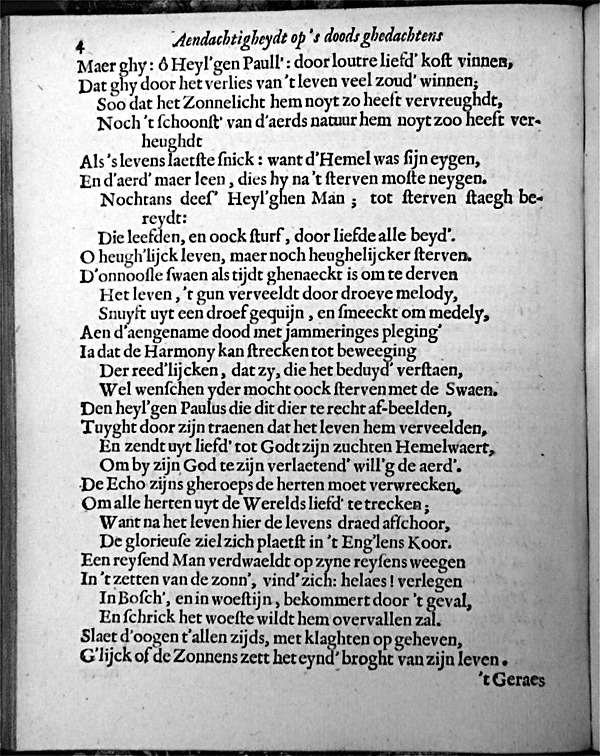 4
Aendachtigheydt op 's doods ghedachtens
Maer ghy: ô Heyl'gen Paull': door loutre liefd' koſt vinnen,
Dat ghy door het verlies van 't leven veel zoud' winnen;
Soo dat het Zonnelicht hem noyt zo heeft vervreughdt,
Noch 't ſchoonſt' van d'aerds natuur hem noyt zoo heeft ver-
heughdt
Als 's levens laetſte ſnick: want d'Hemel was ſijn eygen,
En d'aerd' maer leen, dies hy na 't ſterven moſte neygen.
Nochtans deeſ' Heyl'ghen Man; tot ſterven ſtaegh be-
reydt:
Die leefden, en oock ſturf, door liefde alle beyd'.
O heugh'lijck leven, maer noch heughelijcker ſterven.
D'onnooſle ſwaen als tijdt ghenaeckt is om te derven
Het leven, 't gun verveeldt door droeve melody,
Snuyft uyt een droef gequijn, en ſmeeckt om medely,
Aen d'aengename dood met jammeringes pleging'
Ia dat de Harmony kan ſtrecken tot beweeging
Der reed'lijcken, dat zy, die het beduyd' verſtaen,
Wel wenſchen yder mocht oock ſterven met de Swaen.
Den heyl'gen Paulus die dit dier te recht af-beelden,
Tuyght door zijn traenen dat het leven hem verveelden,
En zendt uyt liefd' tot Godt zijn zuchten Hemelwaert,
Om by zijn God te zijn verlaetend' will'g de aerd'.
De Echo zijns gheroeps de herten moet verwrecken,
Om alle herten uyt de Werelds liefd' te trecken;
Want na het leven hier de levens draed afſchoor,
De glorieuſe ziel zich plaetſt in 't Eng'lens Koor.
Een reyſend Man verdwaeldt op zyne reyſens weegen
In 't zetten van de zonn', vind' zich: helaes! verlegen
In Boſch', en in woeſtijn, bekommert door 't geval,
En ſchrick het woeſte wildt hem overvallen zal.
Slaet d'oogen t'allen zijds, met klaghten op geheven,
G'lijck of de Zonnens zett het eynd' broght van zijn leven.
't Geraes